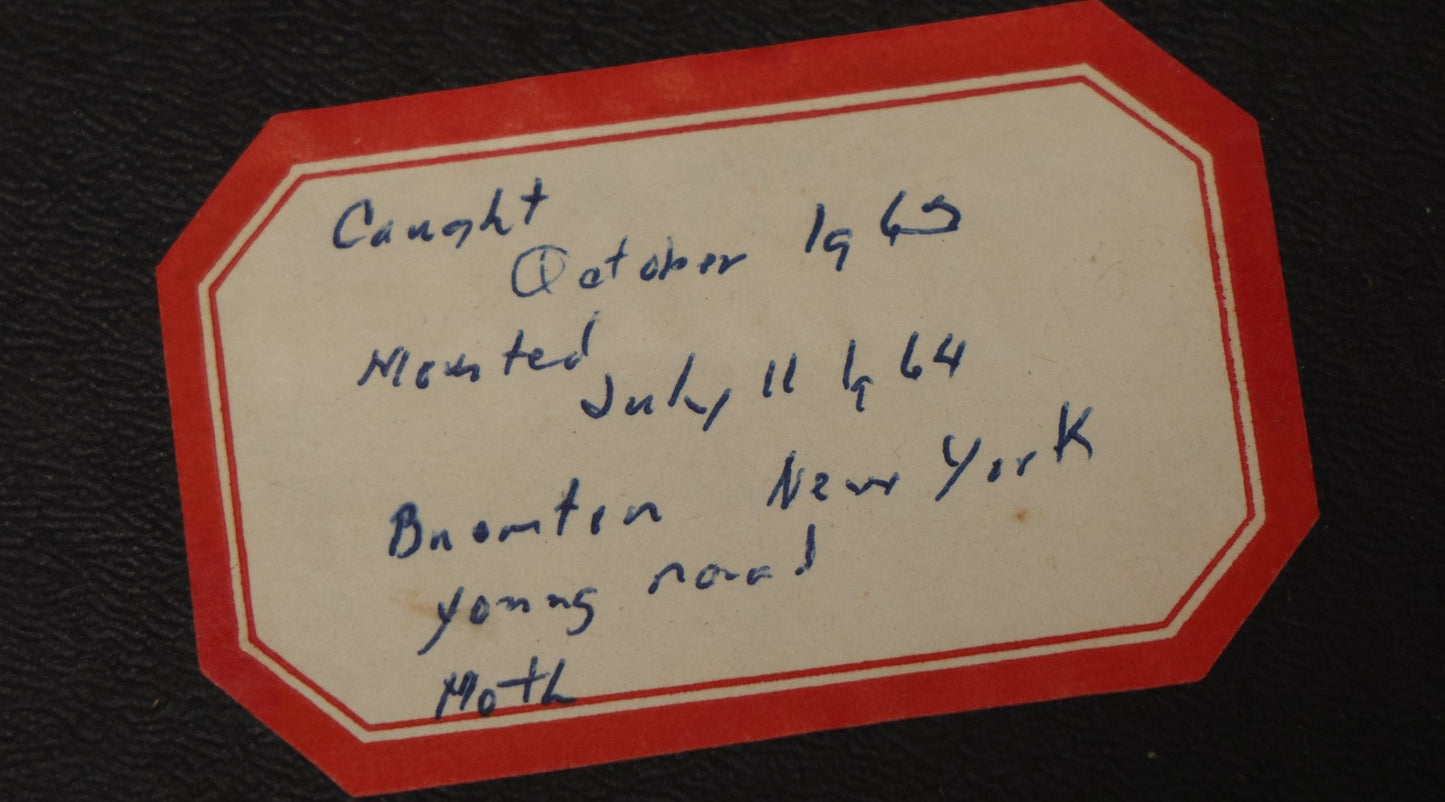 Caught
October 1963
Mounted
July 11 1964
New York
young road
Moth